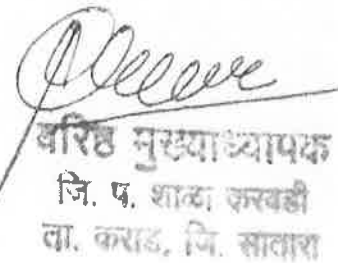 वरिष्ठ मुख्याध्यापक
जि. प. शाळा करवडी
ता. कराड, जि. सातारा